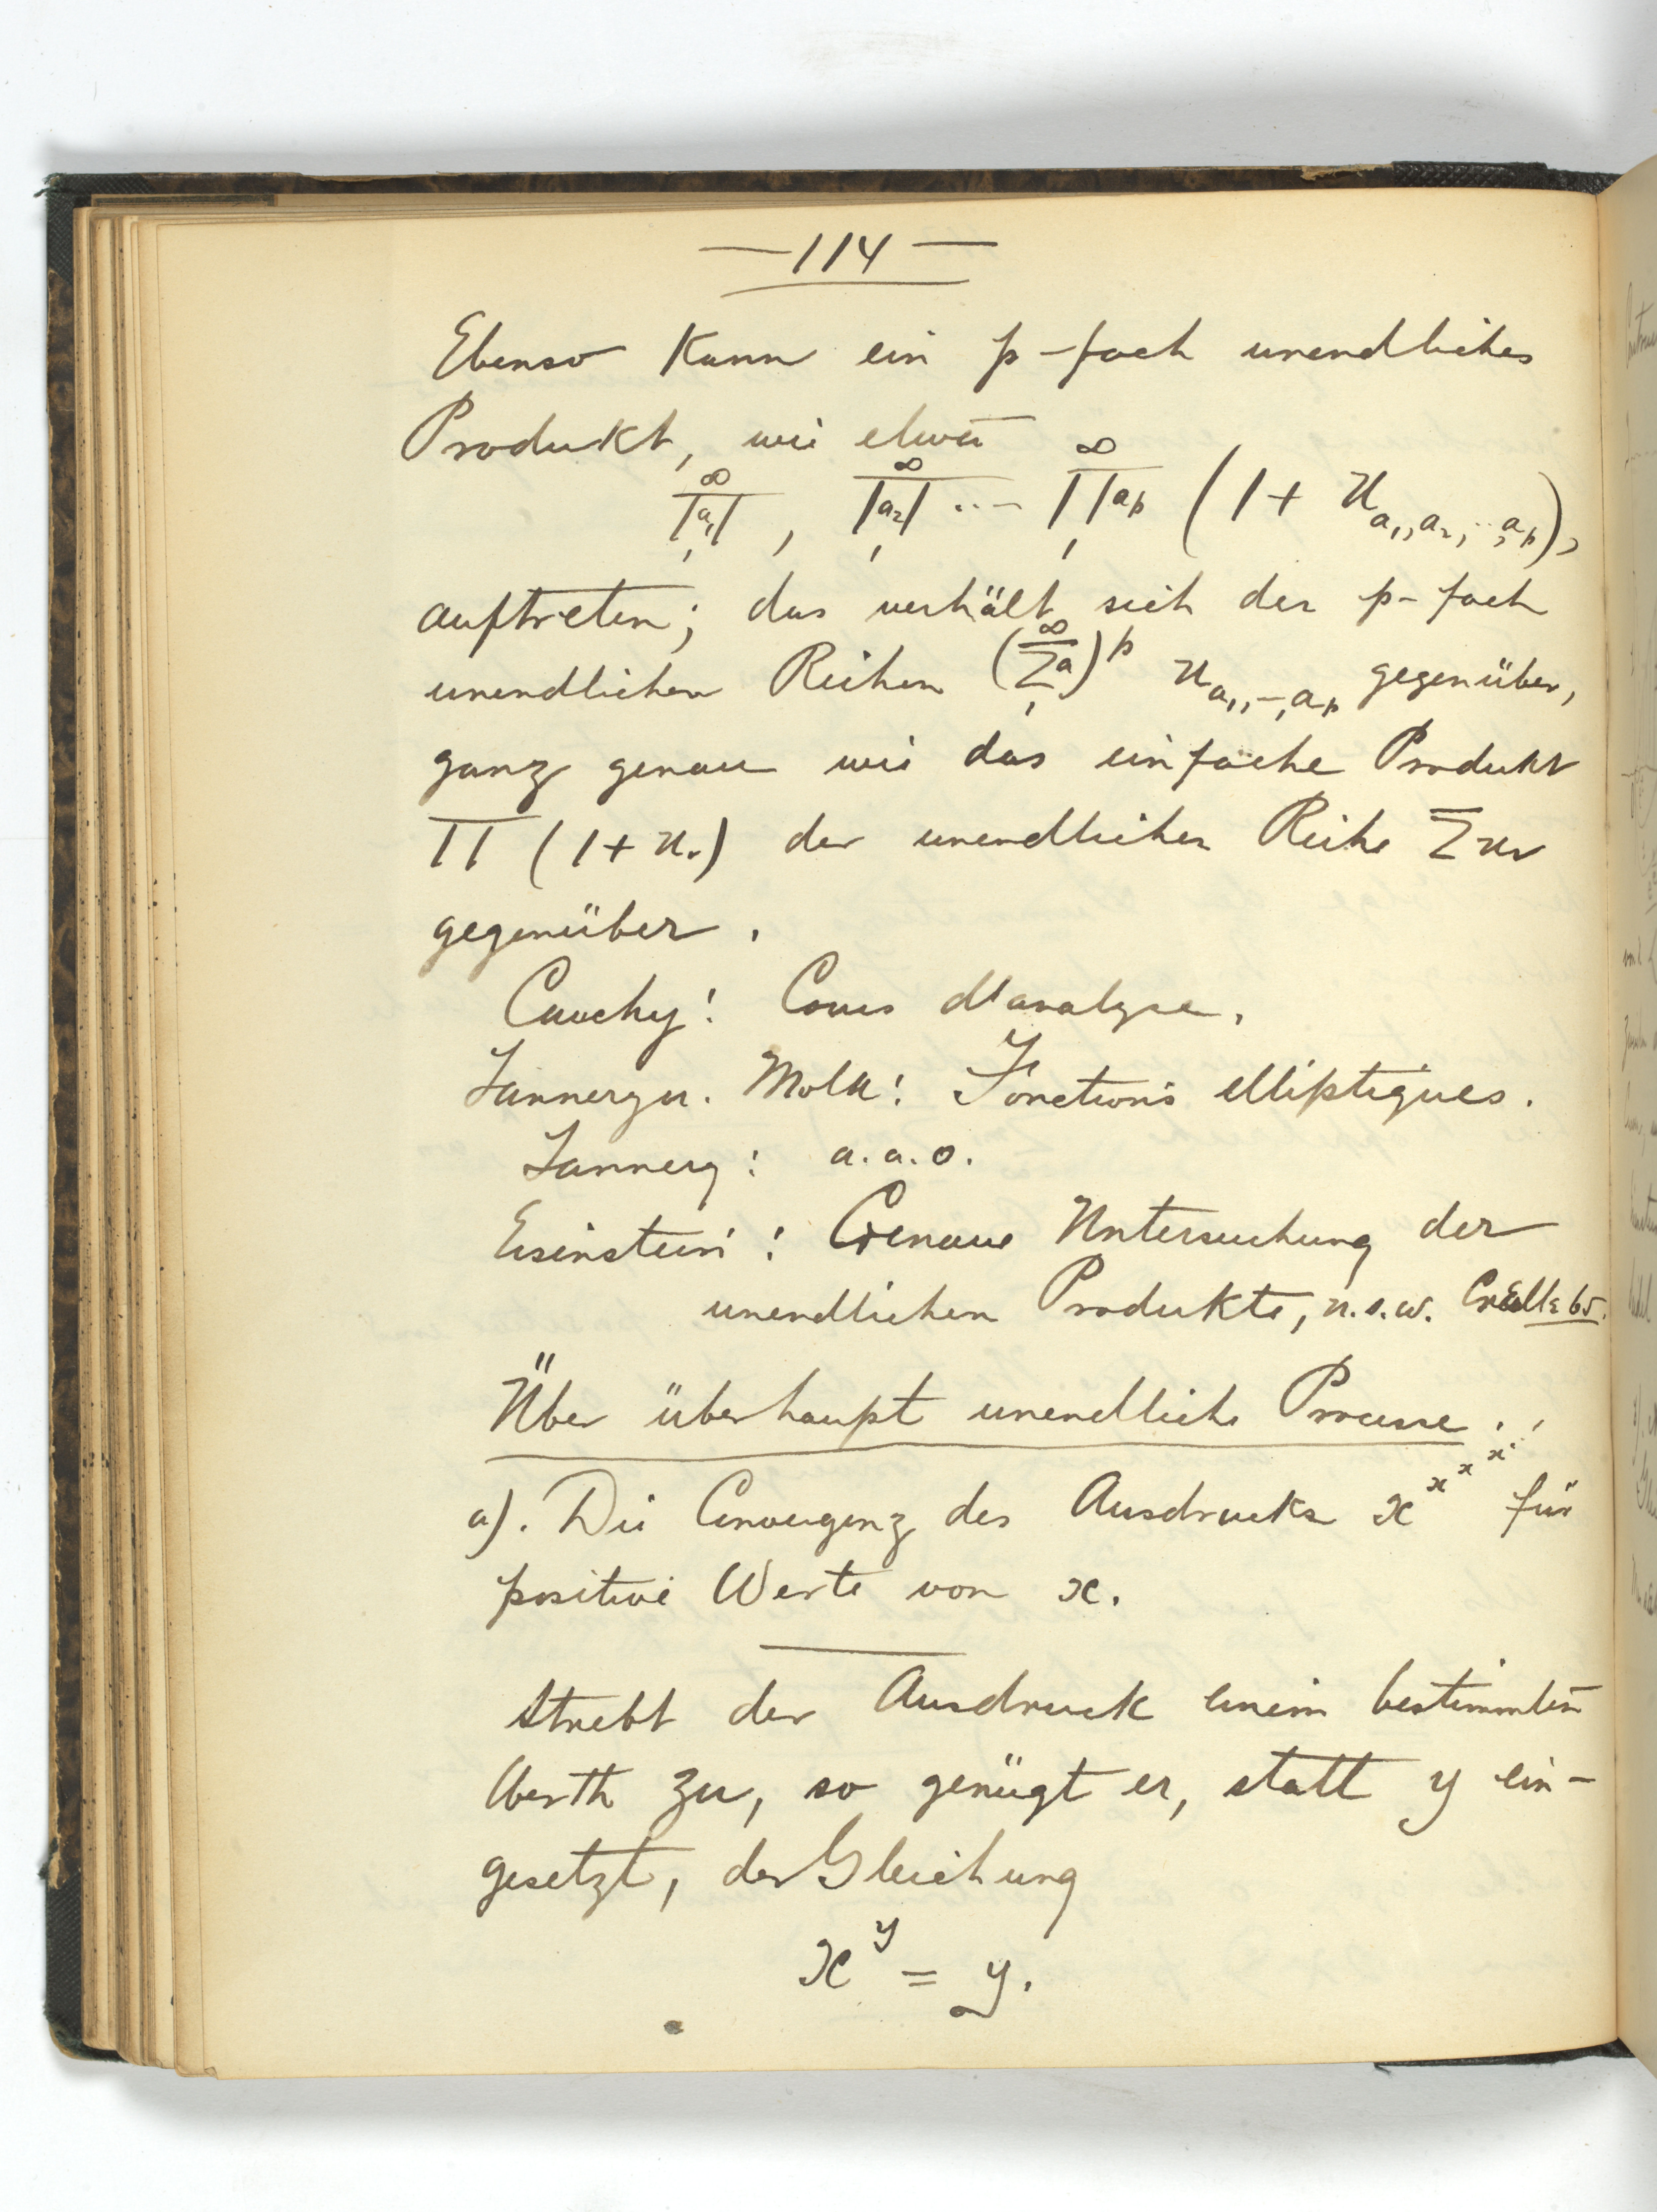 —114—
Ebenso kann ein p-fach unendliches
Produkt, wie etwa
∞∏a₁1, ∞∏a₂1 ... ∞∏aₚ1 (1 + u_{a₁,a₂,...,aₚ}),
auftreten; das verhält sich der p-fach
unendlichen Reihen (∞∑a1)^p u_{a₁,-,aₚ} gegenüber,
ganz genau wie das einfache Produkt
∏ (1 + uᵥ) der unendlichen Reihe ∑uᵥ
gegenüber.
Cauchy: Cours d'analyse.
Tannery u. Molk: Fonctions elliptiques.
Tannery: a.a.o.
Eisenstein: Genaue Untersuchung der
unendlichen Produkte, u.s.w. Crelle
Über überhaupt unendliche Processe.
a). Die Convergenz des Ausdrucks x^{x^{x^{x^{...}}}} für
positive Werte von x.
Strebt der Ausdruck einem bestimmten
Werth zu, so genügt er, statt y ein-
gesetzt, der Gleichung
x^y = y.